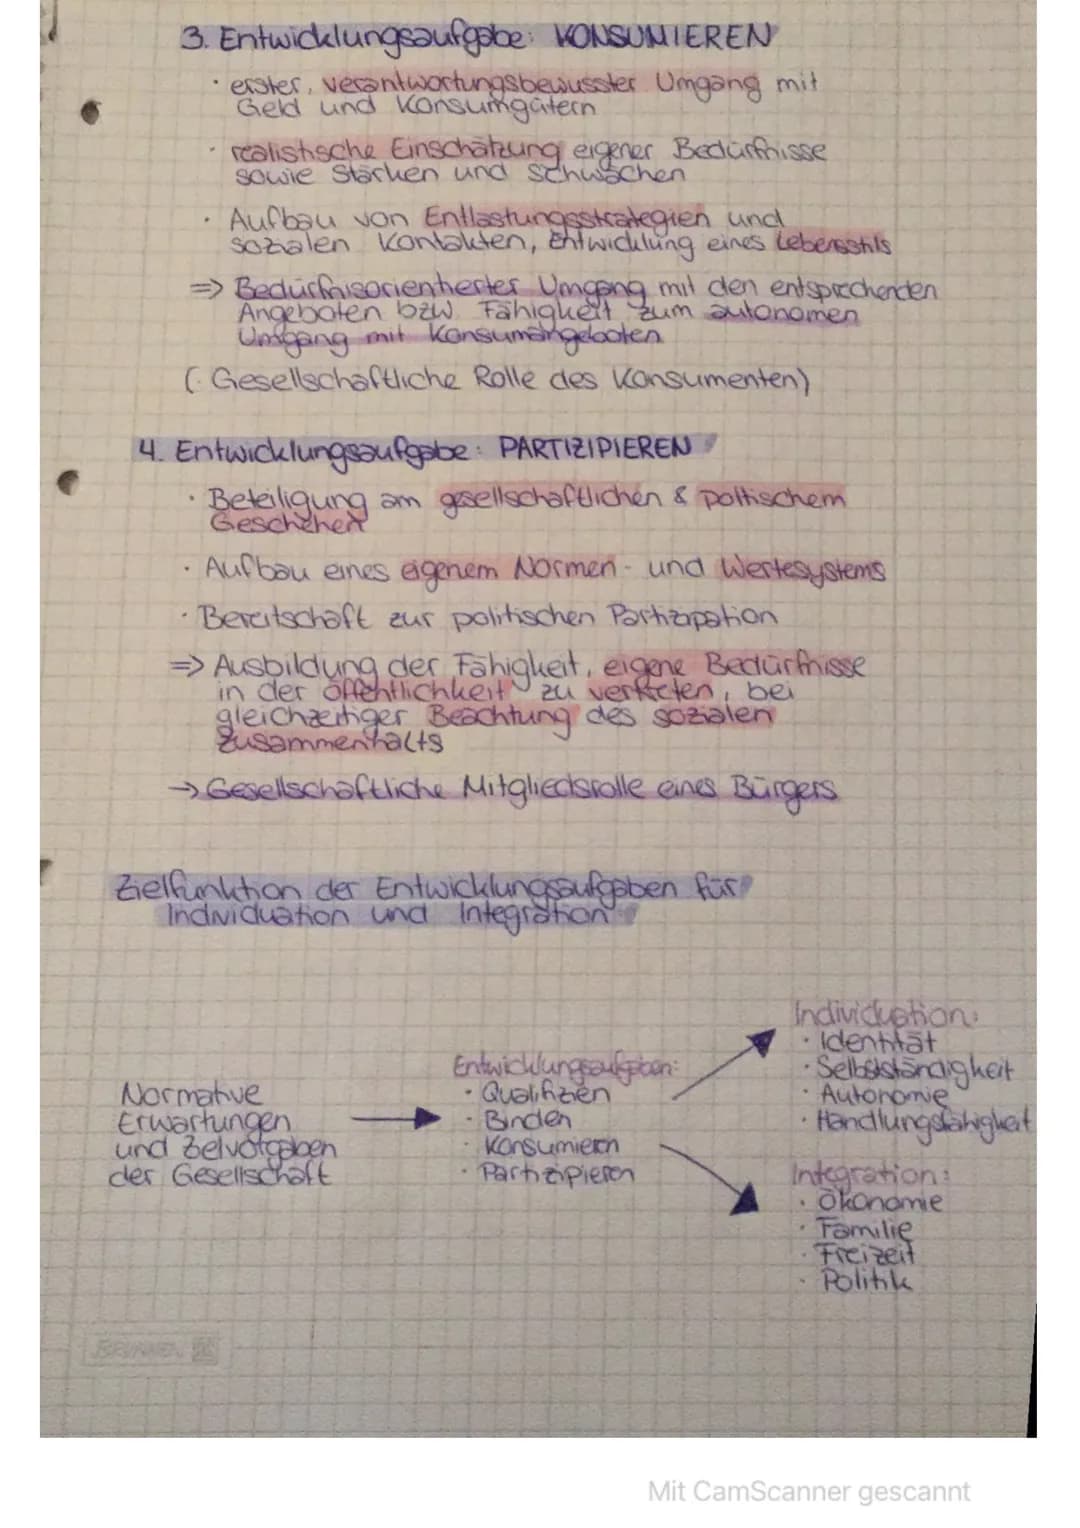 3. Entwicklungsaufgabe: KONSUMIEREN
· erster, verantwortungsbewusster Umgang mit
Geld und Konsumgütern
· realistische Einschätzung eigener Bedürfnisse
sowie Stärken und Schwächen
· Aufbau von Entlastungsstrategien und
sozialen Kontakten, Entwicklung eines Lebensstils
=> Bedürfnisorientierter Umgang mit den entsprechenden
Angeboten bzw. Fähigkeit zum autonomen
Umgang mit Konsumangeboten
(· Gesellschaftliche Rolle des Konsumenten)
4. Entwicklungsaufgabe: PARTIZIPIEREN
· Beteiligung am gesellschaftlichen & poltischem
Geschehen
· Aufbau eines eigenem Normen- und Wertesystems
· Bereitschaft zur politischen Partizipation
=> Ausbildung der Fähigkeit, eigene Bedürfnisse
in der öffentlichkeit zu vertreten, bei
gleichzeitiger Beachtung des sozialen
Zusammenhalts
-> Gesellschaftliche Mitgliedsrolle eines Bürgers
Zielfunktion der Entwicklungsaufgaben für
Individuation und Integration
Normative
Erwartungen
und Zielvorgaben
der Gesellschaft
Entwicklungsaufgaben:
· Qualifizien
· Binden
· Konsumieren
· Partizipieren
Individuation:
· Identität
· Selbstständigkeit
· Autonomie
· Handlungsfähigkeit
Integration:
· Ökonomie
· Familie
· Freizeit
· Politik
BRUNNEN
Mit CamScanner gescannt